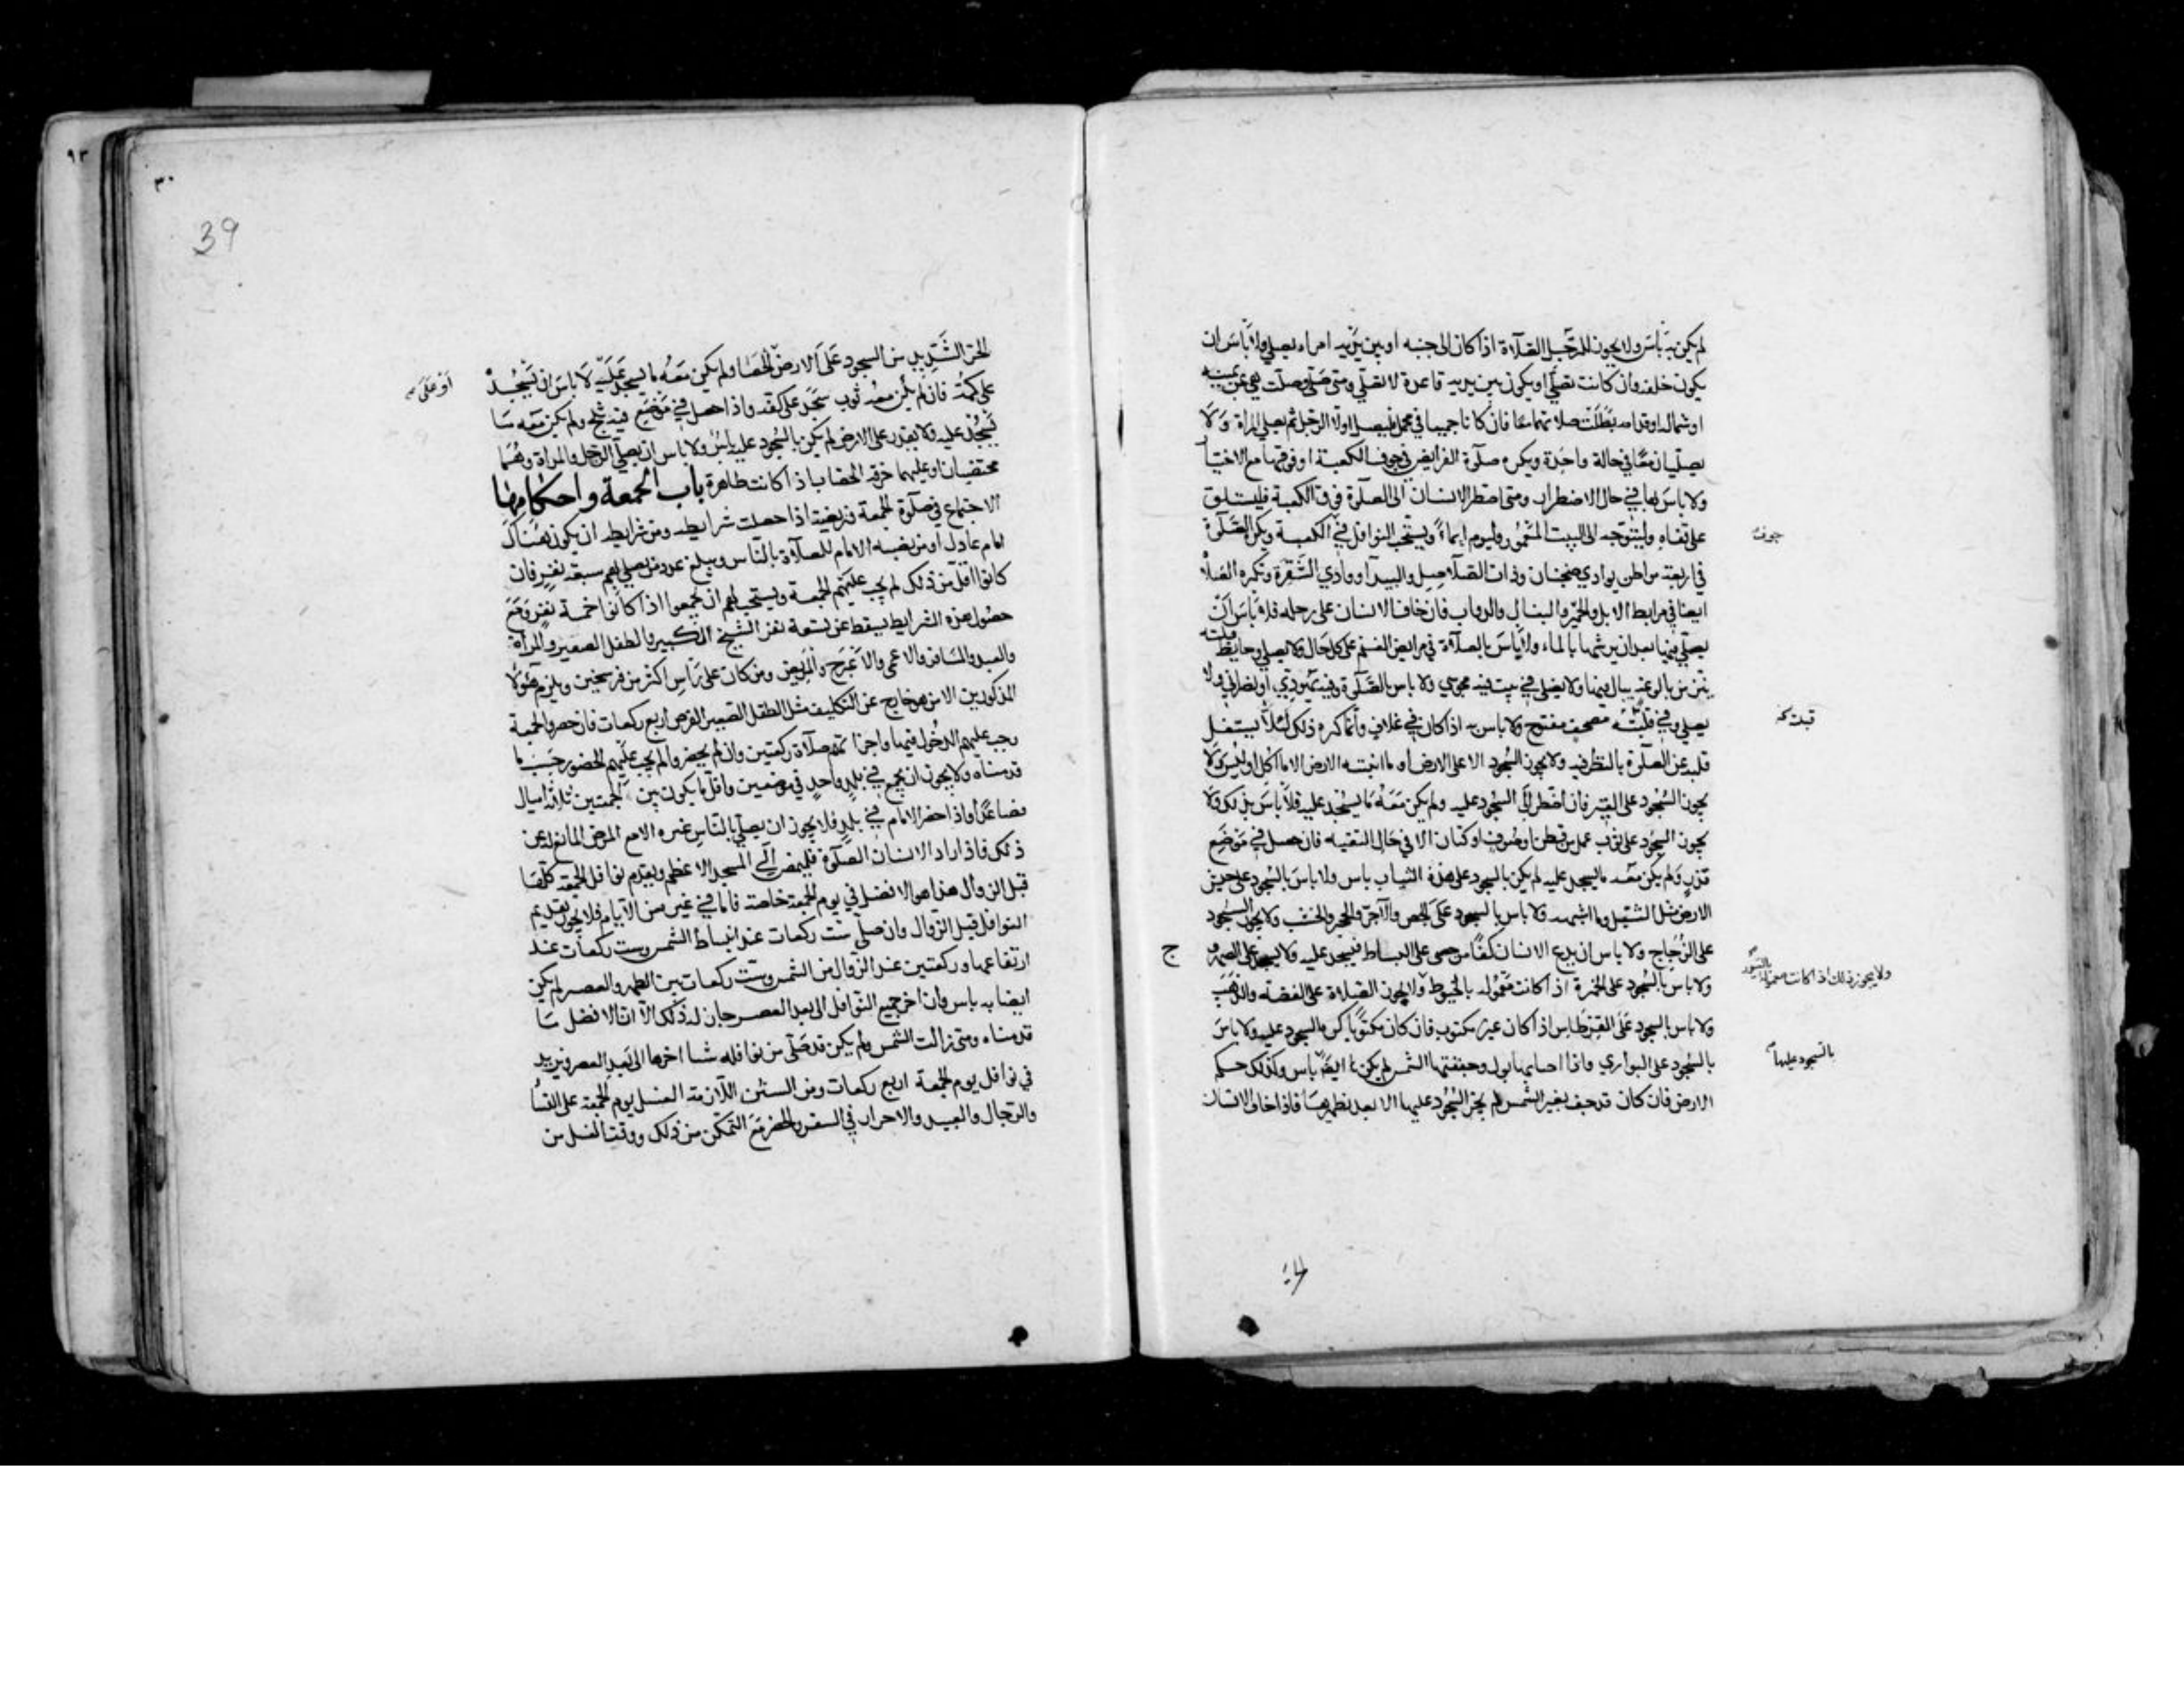 لم يكن به بأس ولا يجوز للرجل الصلاة اذا كان الى جنبه او بين يديه امراة يصلي ولا بأس ان
يكون خلفه وان كانت تصلي او يكون بين يديه قاعدة لا تصلي ومتى صلى وصلت هي عن يمينه
او شماله او قدامه بطلت صلاتهما معا فان كانا جميعا في محمل فليصل اولا الرجل ثم يصلي المراة ولا
يصليان معا في حالة واحدة ويكره صلوة الفرايض في جوف الكعبة او فوقها مع الاختيار
ولا باس بها في حال الاضطرار ومتى اضطر الانسان الى الصلوة فوق الكعبة فليستلق
على قفاه وليتوجه الى البيت المعمور وليوم ايماءً ويستحب النوافل في الكعبة ويكره الصلوة
جوف
في اربعة مواطن بوادي ضجنان وذات الصلاصل والبيدا ووادي الشقرة وتكره الصلاة
ايضا في مرابط الابل والخيل والبغال والدواب فان خاف الانسان على رحله فلا باس ان
يصلي فيها بعد ان يرشها بالماء ولا باس بالصلاة في مرابض الغنم على كل حال ولا يصلي وحايط قبلته
ينز من بالوعة يبال فيها ولا يصلي في بيت فيه مجوسي ولا باس بالصلوة وفيه يهودي او نصراني ولا
يصلي وفي قبلته مصحف مفتوح ولا باس به اذا كان في غلاف وانما كره ذلك لئلا يشتغل
قلبه عن الصلوة بالنظر فيه ولا يجوز السجود الا على الارض او ما انبته الارض الا ما اكل او لبس ولا
يجوز السجود على القير فان اضطر الى السجود عليه ولم يكن معه ما يسجد عليه فلا باس بذلك ولا
يجوز السجود على ثوب عمل من قطن او صوف او كتان الا في حال التقية فان حصل في موضع
قذر ولم يكن معه ما يسجد عليه لم يكن بالسجود على هذه الثياب باس ولا باس بالسجود على حشيش
الارض مثل الثيل وما اشبهه ولا باس بالسجود على الجص والآجر والحجر والخشب ولا يجوز السجود
على الزجاج ولا باس ان يدع الانسان كفا من حصى على البساط فيسجد عليه ولا يسجد على الصهر
ولا باس بالسجود على الخمرة اذا كانت معمولة بالخيوط ولا يجوز الصلاة على الفضة والذهب
ولا يجوز ذلك اذا كانت معمولة بالسيور
ولا باس بالسجود على القرطاس اذا كان غير مكتوب فان كان مكتوبا كره السجود عليه ولا باس
بالسجود على البواري واذا اصابها بول وجففتها الشمس لم يكن ايضا باس وكذلك حكم
بالسجود عليها
الارض فان كان قد جف بغير الشمس لم يجز السجود عليها الا بعد تطهيرها فاذا خاف الانسان
٣٠
39
٩٣
الحر الشديد من السجود على الارض الحصا ولم يكن معه ما يسجد عليه لا باس ان يسجد
او على
على كمه فان لم يكن معه ثوب سجد على كفه واذا حصل في موضع فيه ثلج ولم يكن معه ما
يسجد عليه ولا يقدر على الارض لم يكن بالسجود عليه باس ولا باس ان يصلي الرجل والمراة وهما
مختضبان او عليهما خرقة الخضاب اذا كانت طاهرة باب الجمعة واحكامها
الاجتماع في صلوة الجمعة فريضة اذا حصلت شرايطه ومن شرايطه ان يكون هناك
امام عادل او من نصبه الامام للصلاة بالناس ويبلغ عدد من يصلي بهم سبعة نفر فان
كانوا اقل من ذلك لم يجب عليهم الجمعة ويستحب لهم ان يجمعوا اذا كانوا خمسة نفر ومع
حصول هذه الشرايط يسقط عن تسعة نفر الشيخ الكبير والطفل الصغير والمراة
والعبد والمسافر والاعمى والاعرج والمريض ومن كان على راس اكثر من فرسخين ويلزم هؤلا
المذكورين الا من هو خارج عن التكليف مثل الطفل الصغير الفرض اربع ركعات فان حضروا الجمعة
وجب عليهم الدخول فيها واجزأتهم صلاة ركعتين وان لم يحضروا لم يجب عليهم الحضور حسب ما
قدمناه ولا يجوز ان يجمع في بلد واحد في موضعين واقل ما يكون بين الجمعتين ثلاثة اميال
فصاعدا واذا حضر الامام في بلد فلا يجوز ان يصلي بالناس غيره الا مع المرض المانع له عن
ذلك فاذا اراد الانسان الصلوة فليمض الى المسجد الاعظم ويقدم نوافل الجمعة كلها
قبل الزوال هذا هو الافضل في يوم الجمعة خاصة فاما في غيره من الايام فلا يجوز تقديم
النوافل قبل الزوال وان صلى ست ركعات عند انبساط الشمس وست ركعات عند
ارتفاعها وركعتين عند الزوال من الشمس وست ركعات بين الظهر والعصر لم يكن
ايضا به باس وان اخر جميع النوافل الى بعد العصر جاز له ذلك الا ان الافضل ما
قدمناه ومتى زالت الشمس ولم يكن قد صلى من نوافله شيا اخرها الى بعد العصر ويزيد
في نوافل يوم الجمعة اربع ركعات ومن السنن اللازمة الغسل يوم الجمعة على النسا
والرجال والعبيد والاحرار في السفر والحضر مع التمكن من ذلك ووقت الغسل من